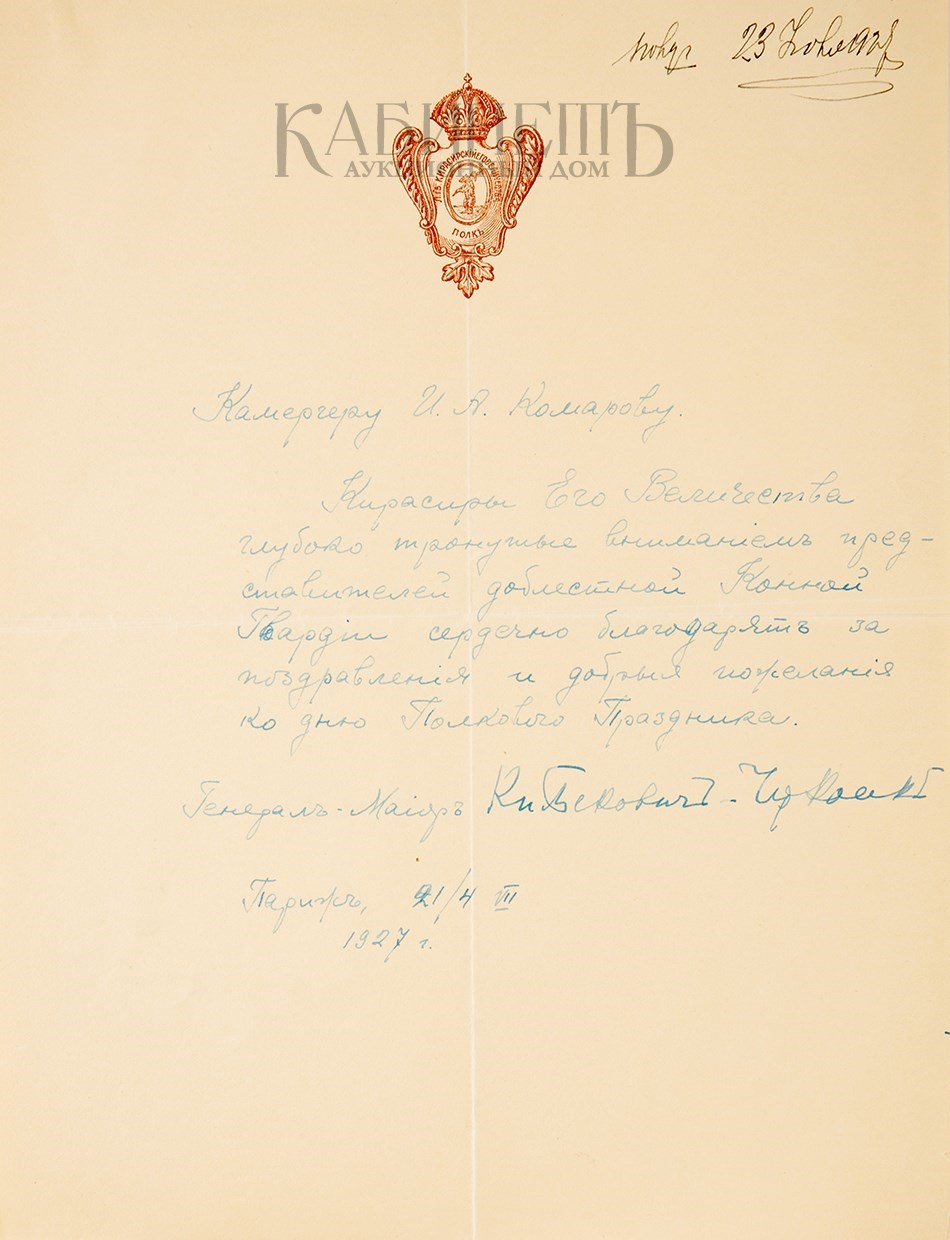 23 Ноября 1927
КАБИНЕТЪ
АУКЦИОННЫЙ ДОМ
ПОЛКЪ
Камергеру И. А. Комарову.
Кирасиры Его Величества
глубоко тронутые вниманіемъ пред-
ставителей доблестной Конной
Гвардіи сердечно благодарятъ за
поздравленія и добрыя пожеланія
ко дню Полкового Праздника.
Генералъ-Маіоръ Кн Бековичъ-Черкасскій
Парижъ, 21/4 VIII
1927 г.